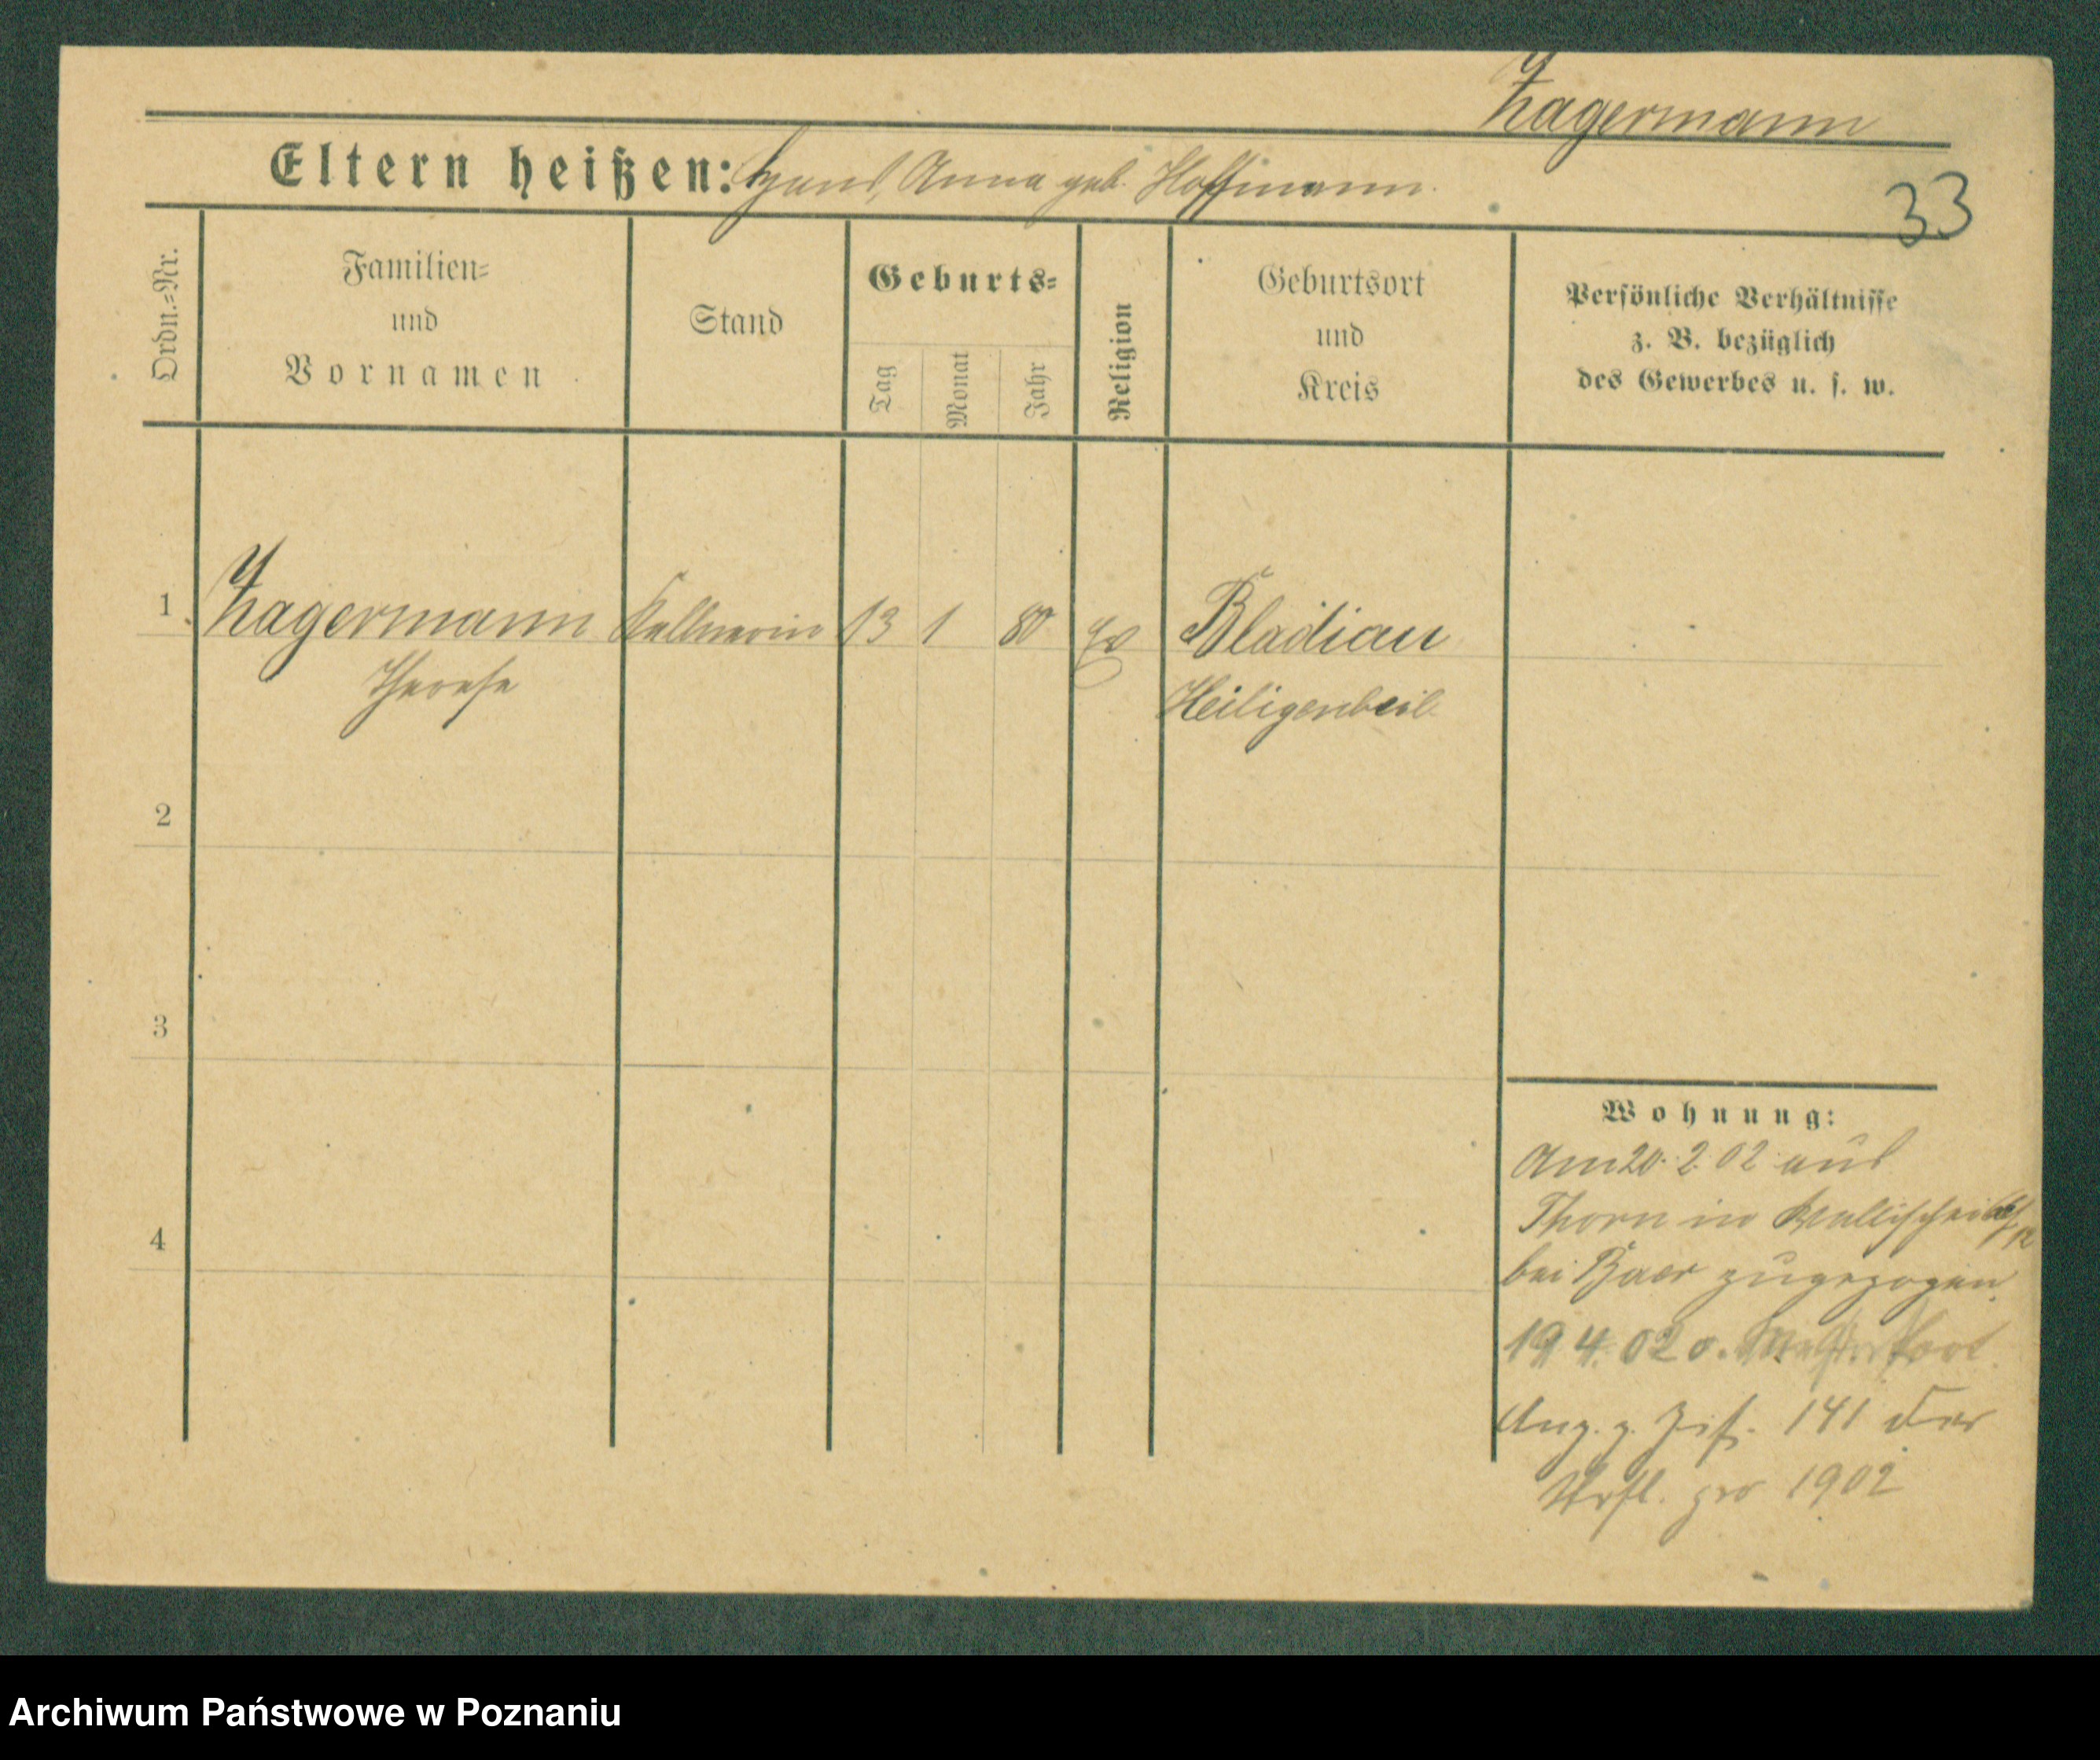 Zagermann
Eltern heißen: Hans, Anna geb. Hoffmann.
33
Ordn.=Nr.
Familien=
und
Vornamen
Stand
Geburts=
Tag
Monat
Jahr
Religion
Geburtsort
und
Kreis
Persönliche Verhältnisse
z. B. bezüglich
des Gewerbes u. s. w.
1 Zagermann Kellnerin 13 1 80 Ev Bladiau
Therese
Heiligenbeil
2
3
4
Wohnung:
Am 20. 2. 02 aus
Thorn in Wallischei
bei Baer zugezogen.
19 4. 02 o.
Ang. z. Ziff. 141 der
pro 1902
Archiwum Państwowe w Poznaniu